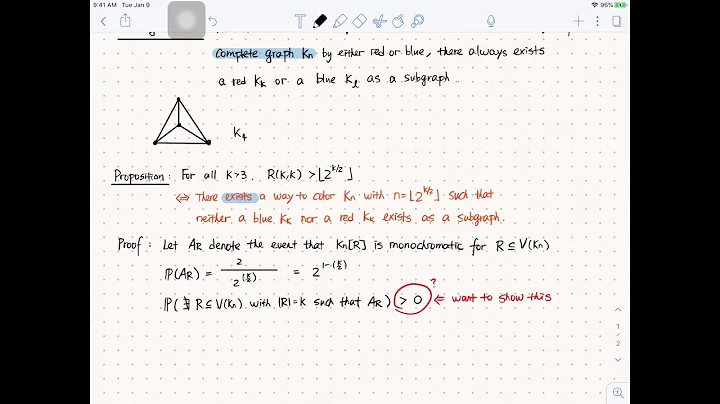 9:41 AM Tue Jan 9
96%
complete graph Kn by either red or blue, there always exists
a red Kk or a blue Kl as a subgraph.
K4
Proposition: For all k>3. R(k,k) > ⌊2^{k/2}⌋
⇔ There exists a way to color Kn with n=⌊2^{k/2}⌋ such that
neither a blue Kk nor a red Kk exists as a subgraph.
Proof: Let AR denote the event that Kn[R] is monochromatic for R ⊆ V(Kn)
ℙ(AR) = 2 / 2^{(k 2)} = 2^{1-(k 2)}
ℙ(∄ R ⊆ V(Kn) with |R|=k such that AR) > 0 ? ⇐ want to show this
1
/
2